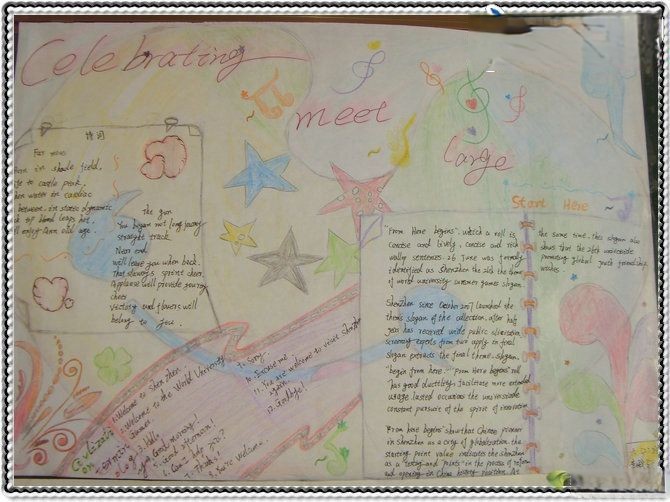 Celebrating
meet
large
诗词
For you
in shade field,
to castle peak,
water in cardiac
between, in static dynamic
of blood leaps hot,
enjoy Asian Old age.
The gun
You began not long journey
straight track
Near end
we'll leave you when back.
That always sprint cheer,
Applause will provide journey
cheer
Victory and flowers will
belong to you.
Start Here
"From Here begins", which a roll is
concise and lively, concise and rich
wally sentences. 26 June was formaly
identified as Shenzhen the 26th the theme
of world university summer games slogan.
Shenzhen since October 2007 launched the
thems slogan of the collection, after half
year has received wide public
screening experts from four apply in final
slogan extracts the final theme-slogan.
"begin from here." "From Here begins" roll
has good ductility, facilitate more extended
usage lasted occasions the universiade
constant pursuite of the spirit of innovation
From here begins show that Chinese pioneer
in Shenzhen as a city of globalization the
starting point value indicates the shenzhen
as a testing and points in the process of reform
and opening in China history position. At
the same time, this slogan also
shows that the 26th universiade
promoting global youth friendship
wishes.
Civilization
1. Welcome to Shenzhen
2. Welcome to the World University
Games
3. Hello!
4. Good morning!
5. Good afternoon!
6. Can I help you?
7. Thanks!
8. You're welcome!
9. Sorry
10. Excuse me
11. You are welcome to visit Shenzhen
again.
12. Goodbye!